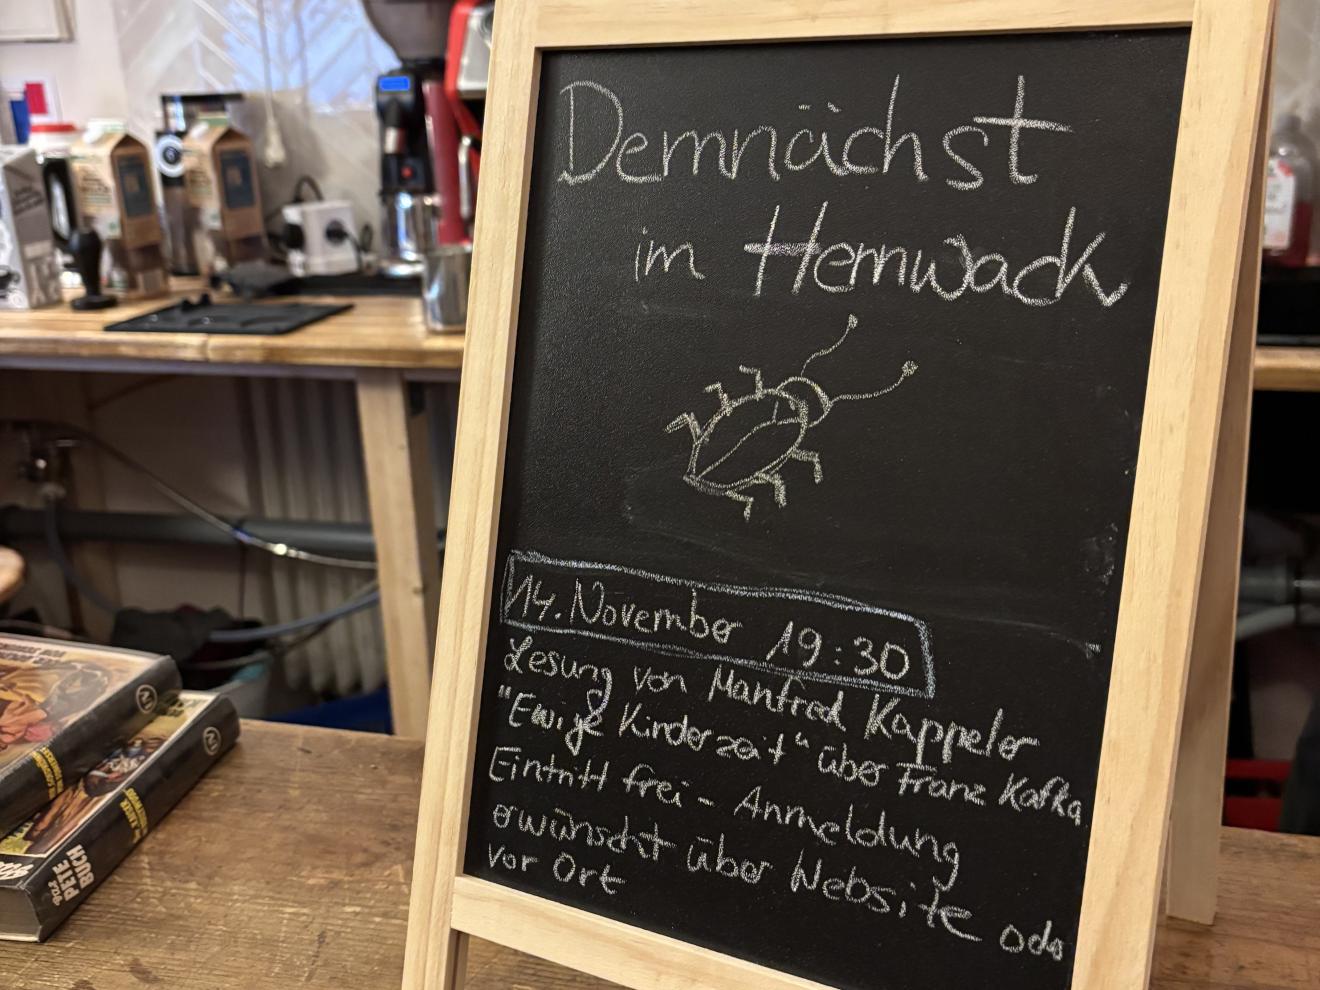 Demnächst
im Hernwack
14. November 19:30
Lesung von Manfred Kappeler
"Ewige Kinderzeit" über Franz Kafka
Eintritt frei - Anmeldung
erwünscht über Website oder
vor Ort
PETE
BUCH